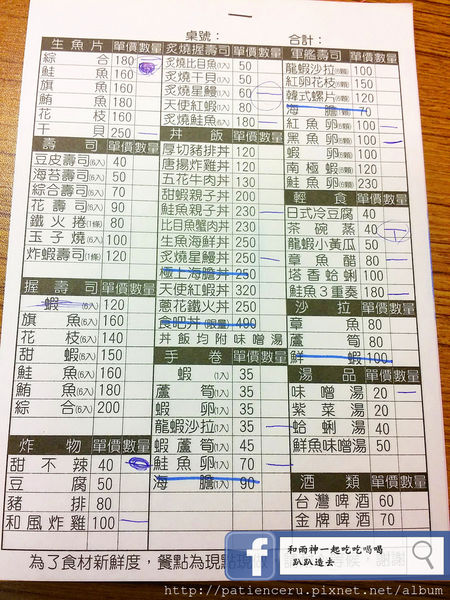 桌號： 合計：
生魚片 單價 數量
綜合 180
鮭魚 160
旗魚 160
鮪魚 180
花枝 160
干貝 250
壽司 單價 數量
豆皮壽司(6入) 40
海苔壽司(6入) 50
綜合壽司(6入) 70
花壽司(6入) 90
鐵火捲(1條) 80
玉子燒(6入) 100
炸蝦壽司(1條) 120
握壽司 單價 數量
蝦(6入) 120
旗魚(6入) 160
花枝(6入) 140
甜蝦(6入) 150
鮭魚(6入) 160
鮪魚(6入) 180
綜合(6入) 200
炸物 單價 數量
甜不辣 40
豆腐 50
豬排 80
和風炸雞 100
炙燒握壽司 單價 數量
炙燒比目魚(1入) 50
炙燒干貝(1入) 50
炙燒星鰻(1入) 60
天使紅蝦(1入) 80
炙燒鮭魚(1入) 50
丼飯 單價 數量
厚切豬排丼 120
唐揚炸雞丼 120
五花牛肉丼 130
甜蝦親子丼 200
鮭魚親子丼 230
比目魚蟹肉丼 230
生魚海鮮丼 250
炙燒星鰻丼 250
極上海膽丼 250
天使紅蝦丼 320
蔥花鐵火丼 250
食吧丼(限量) 490
丼飯均附味噌湯
手卷 單價 數量
蝦(1入) 35
蘆筍(1入) 35
蝦卵(1入) 35
龍蝦沙拉(1入) 35
蝦蘆筍(1入) 45
鮭魚卵(1入) 70
海膽(1入) 90
軍艦壽司 單價 數量
龍蝦沙拉(6顆) 100
紅卵花枝(6顆) 150
韓式螺片(6顆) 100
海膽(1顆) 70
紅魚卵(6顆) 100
黑魚卵(6顆) 100
蝦卵(6顆) 100
南極蝦(6顆) 120
鮭魚卵(6顆) 230
輕食 單價 數量
日式冷豆腐 40
茶碗蒸 40
龍蝦小黃瓜 50
章魚醋 80
塔香蛤蜊 100
鮭魚3重奏 180
沙拉 單價 數量
章魚 80
蘆筍 80
鮮蝦 100
湯品 單價 數量
味噌湯 20
紫菜湯 20
蛤蜊湯 40
鮮魚味噌湯 50
酒類 單價 數量
台灣啤酒 60
金牌啤酒 70
為了食材新鮮度，餐點為現點現
f 和雨神一起吃吃喝喝
趴趴造去
http://patienceru.pixnet.net/album